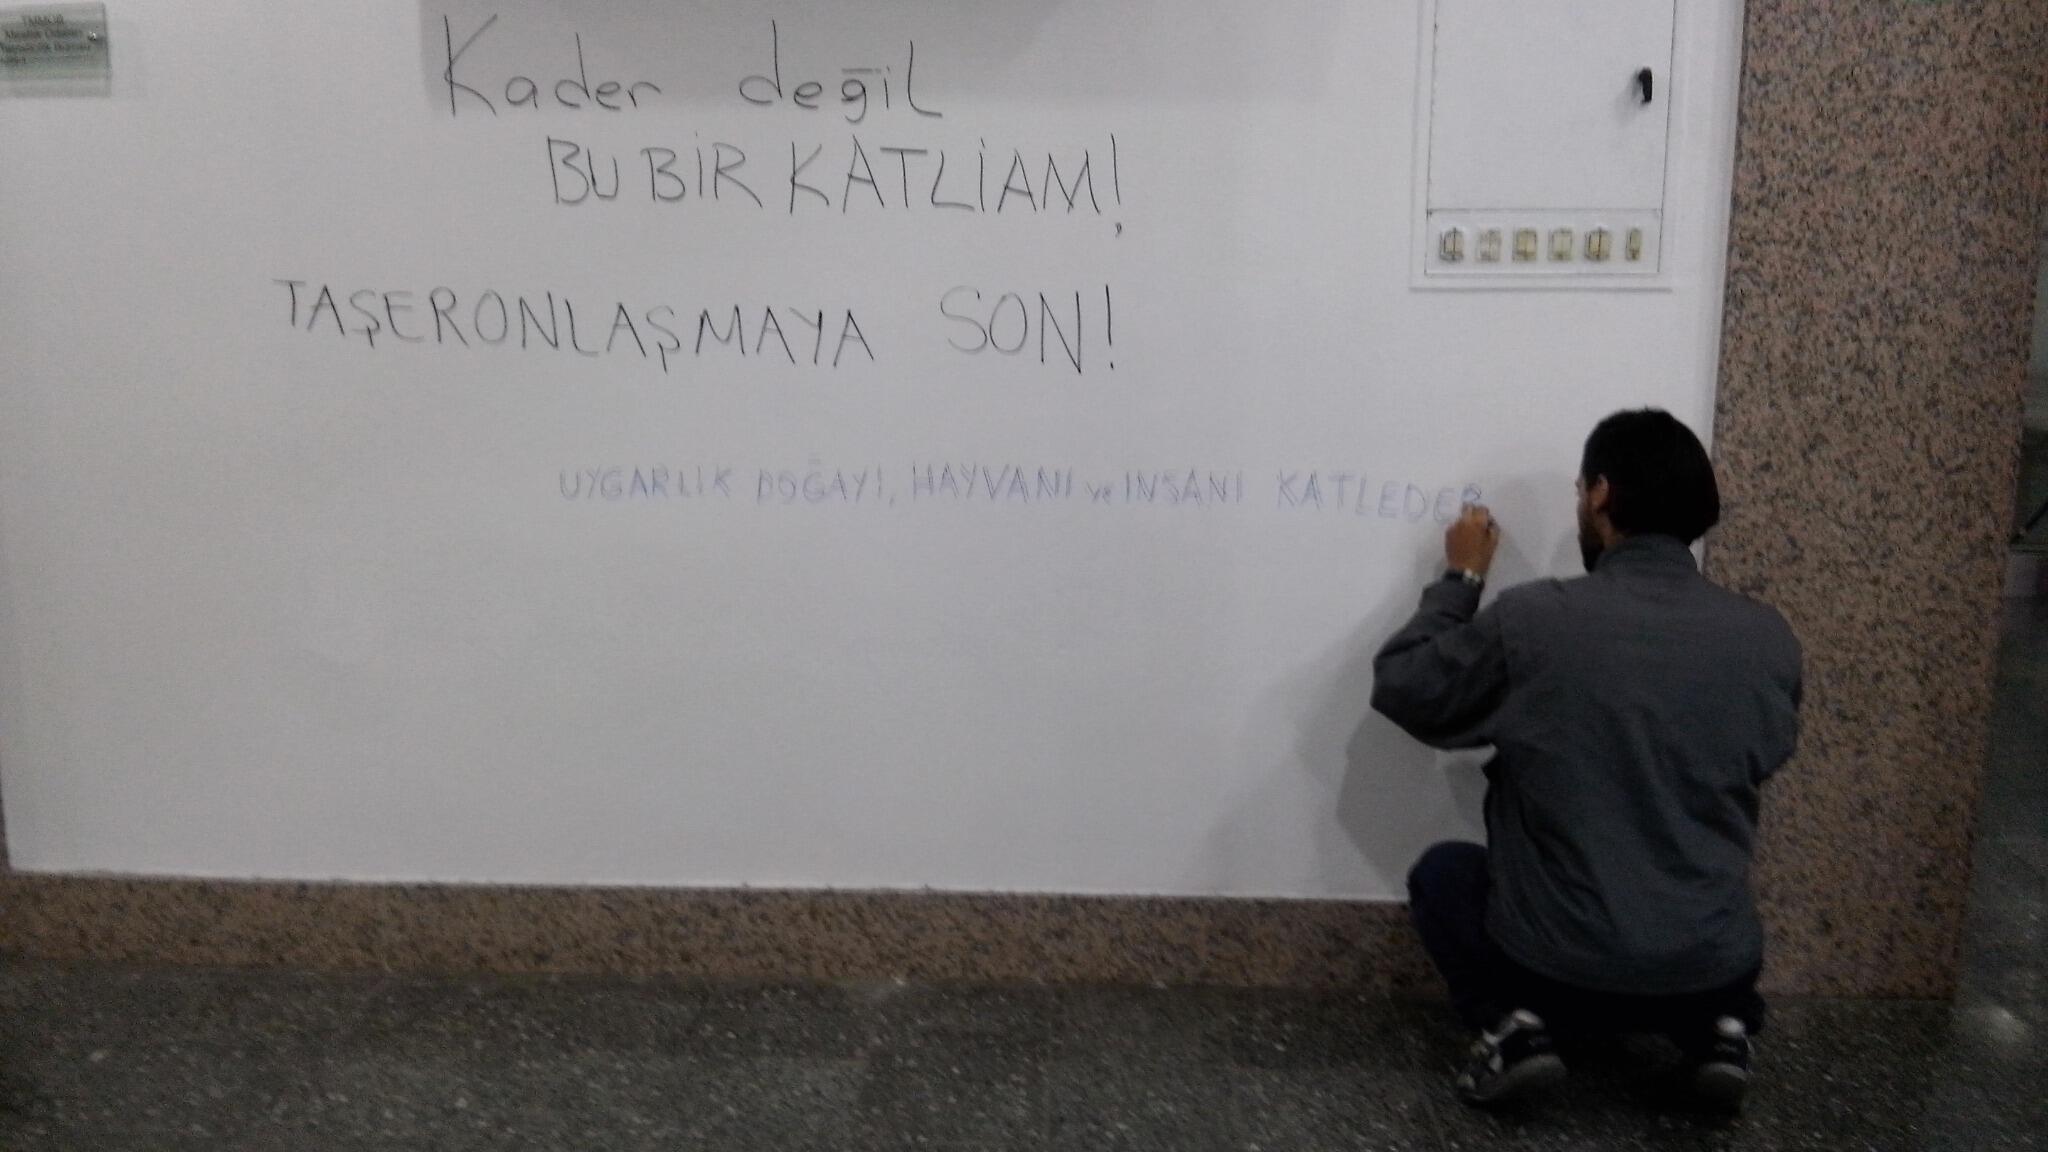 TMMOB
Kader değil
BU BİR KATLİAM!
TAŞERONLAŞMAYA SON!
UYGARLIK DOĞAYI, HAYVANI ve INSANI KATLEDER